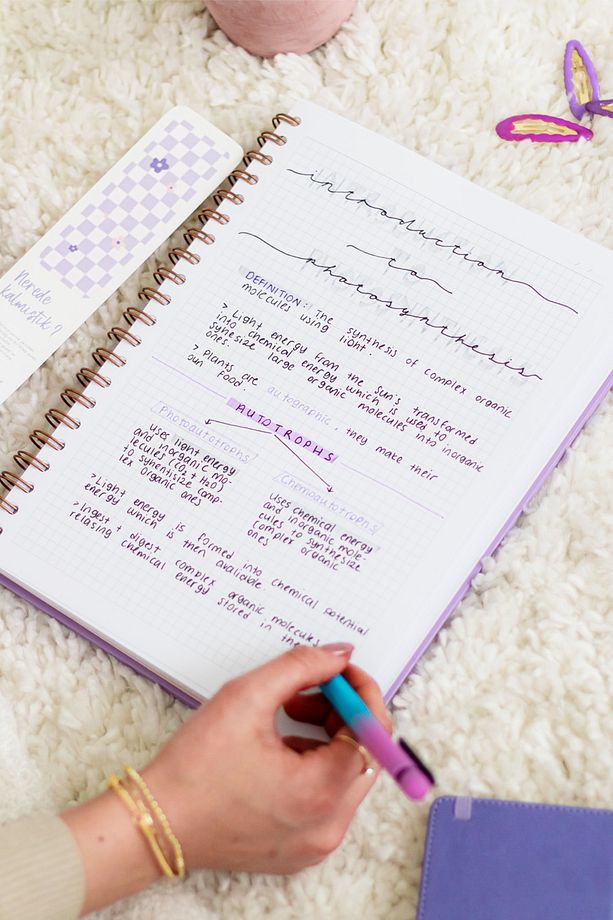 introduction
to
photosynthesis
DEFINITION: The synthesis of complex organic
molecules using light.
> Light energy from the sun's transformed
into chemical energy which is used to
synesize large organic molecules into inorganic
ones.
> Plants are autographic, they make their
own food!
AUTOTROPHS
Photoautotrophs
uses light energy
and inorganic mo-
lecules (CO2 + H2O)
to synentisize comp-
lex organic ones
Chemoautotrophs
Uses chemical energy
and inorganic mole-
cules to synthesize
complex organic
ones
> Light energy is formed into chemical potential
energy which is then avalidble.
> Ingest + digest complex organic molecules
relasing chemical energy stored in the
Nerede
kalmıştık?